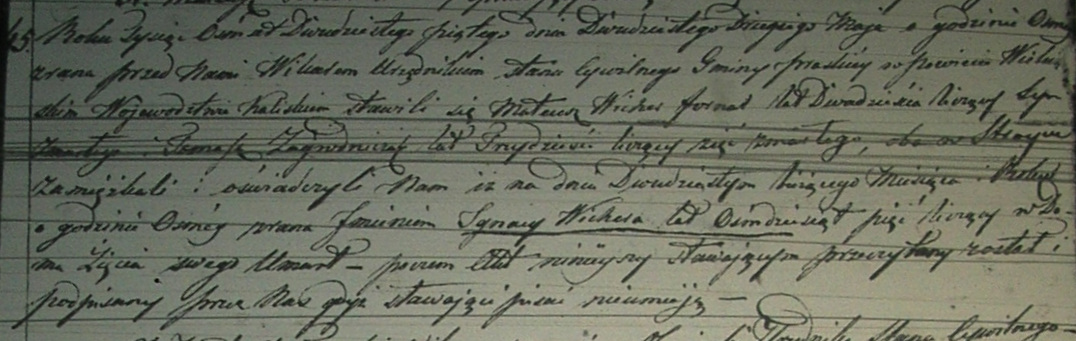 45 Roku Tysiąc Osmset Dwudziestego piątego dnia Dwudziestego Drugiego Maja o godzinie Osmej
zrana przed Nami Wikarem Urzędnikiem stanu Cywilnego Gminy praskiej w powiecie Wieluń-
skim Wojewodztwie Kaliskim stawili się Mateusz Wicher fornal lat Dwadzieścia liczący Syn
Zmarłego i Tomasz Zagrodniczek lat Trzydzieści liczący zięć zmarłego, oba w
Zamieszkali i oświadczyli Nam iż na dniu Dwudziestym bieżącego Miesiąca i Roku
o godzinie Osmej zrana Jgnacy Wichera lat Ośmdziesiąt pięć liczący w Do-
mu życia swego Umarł – poczem Akt niniejszy stawającym przeczytany został i
podpisany przez Nas gdyż stawający pisać nieumieją –
stanu Cywilnego –